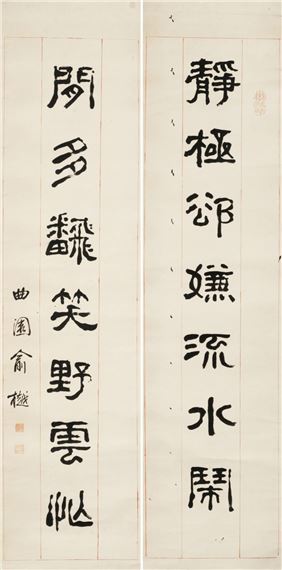 靜極卻嫌流水鬧
閒多翻笑野雲忙
曲園俞樾